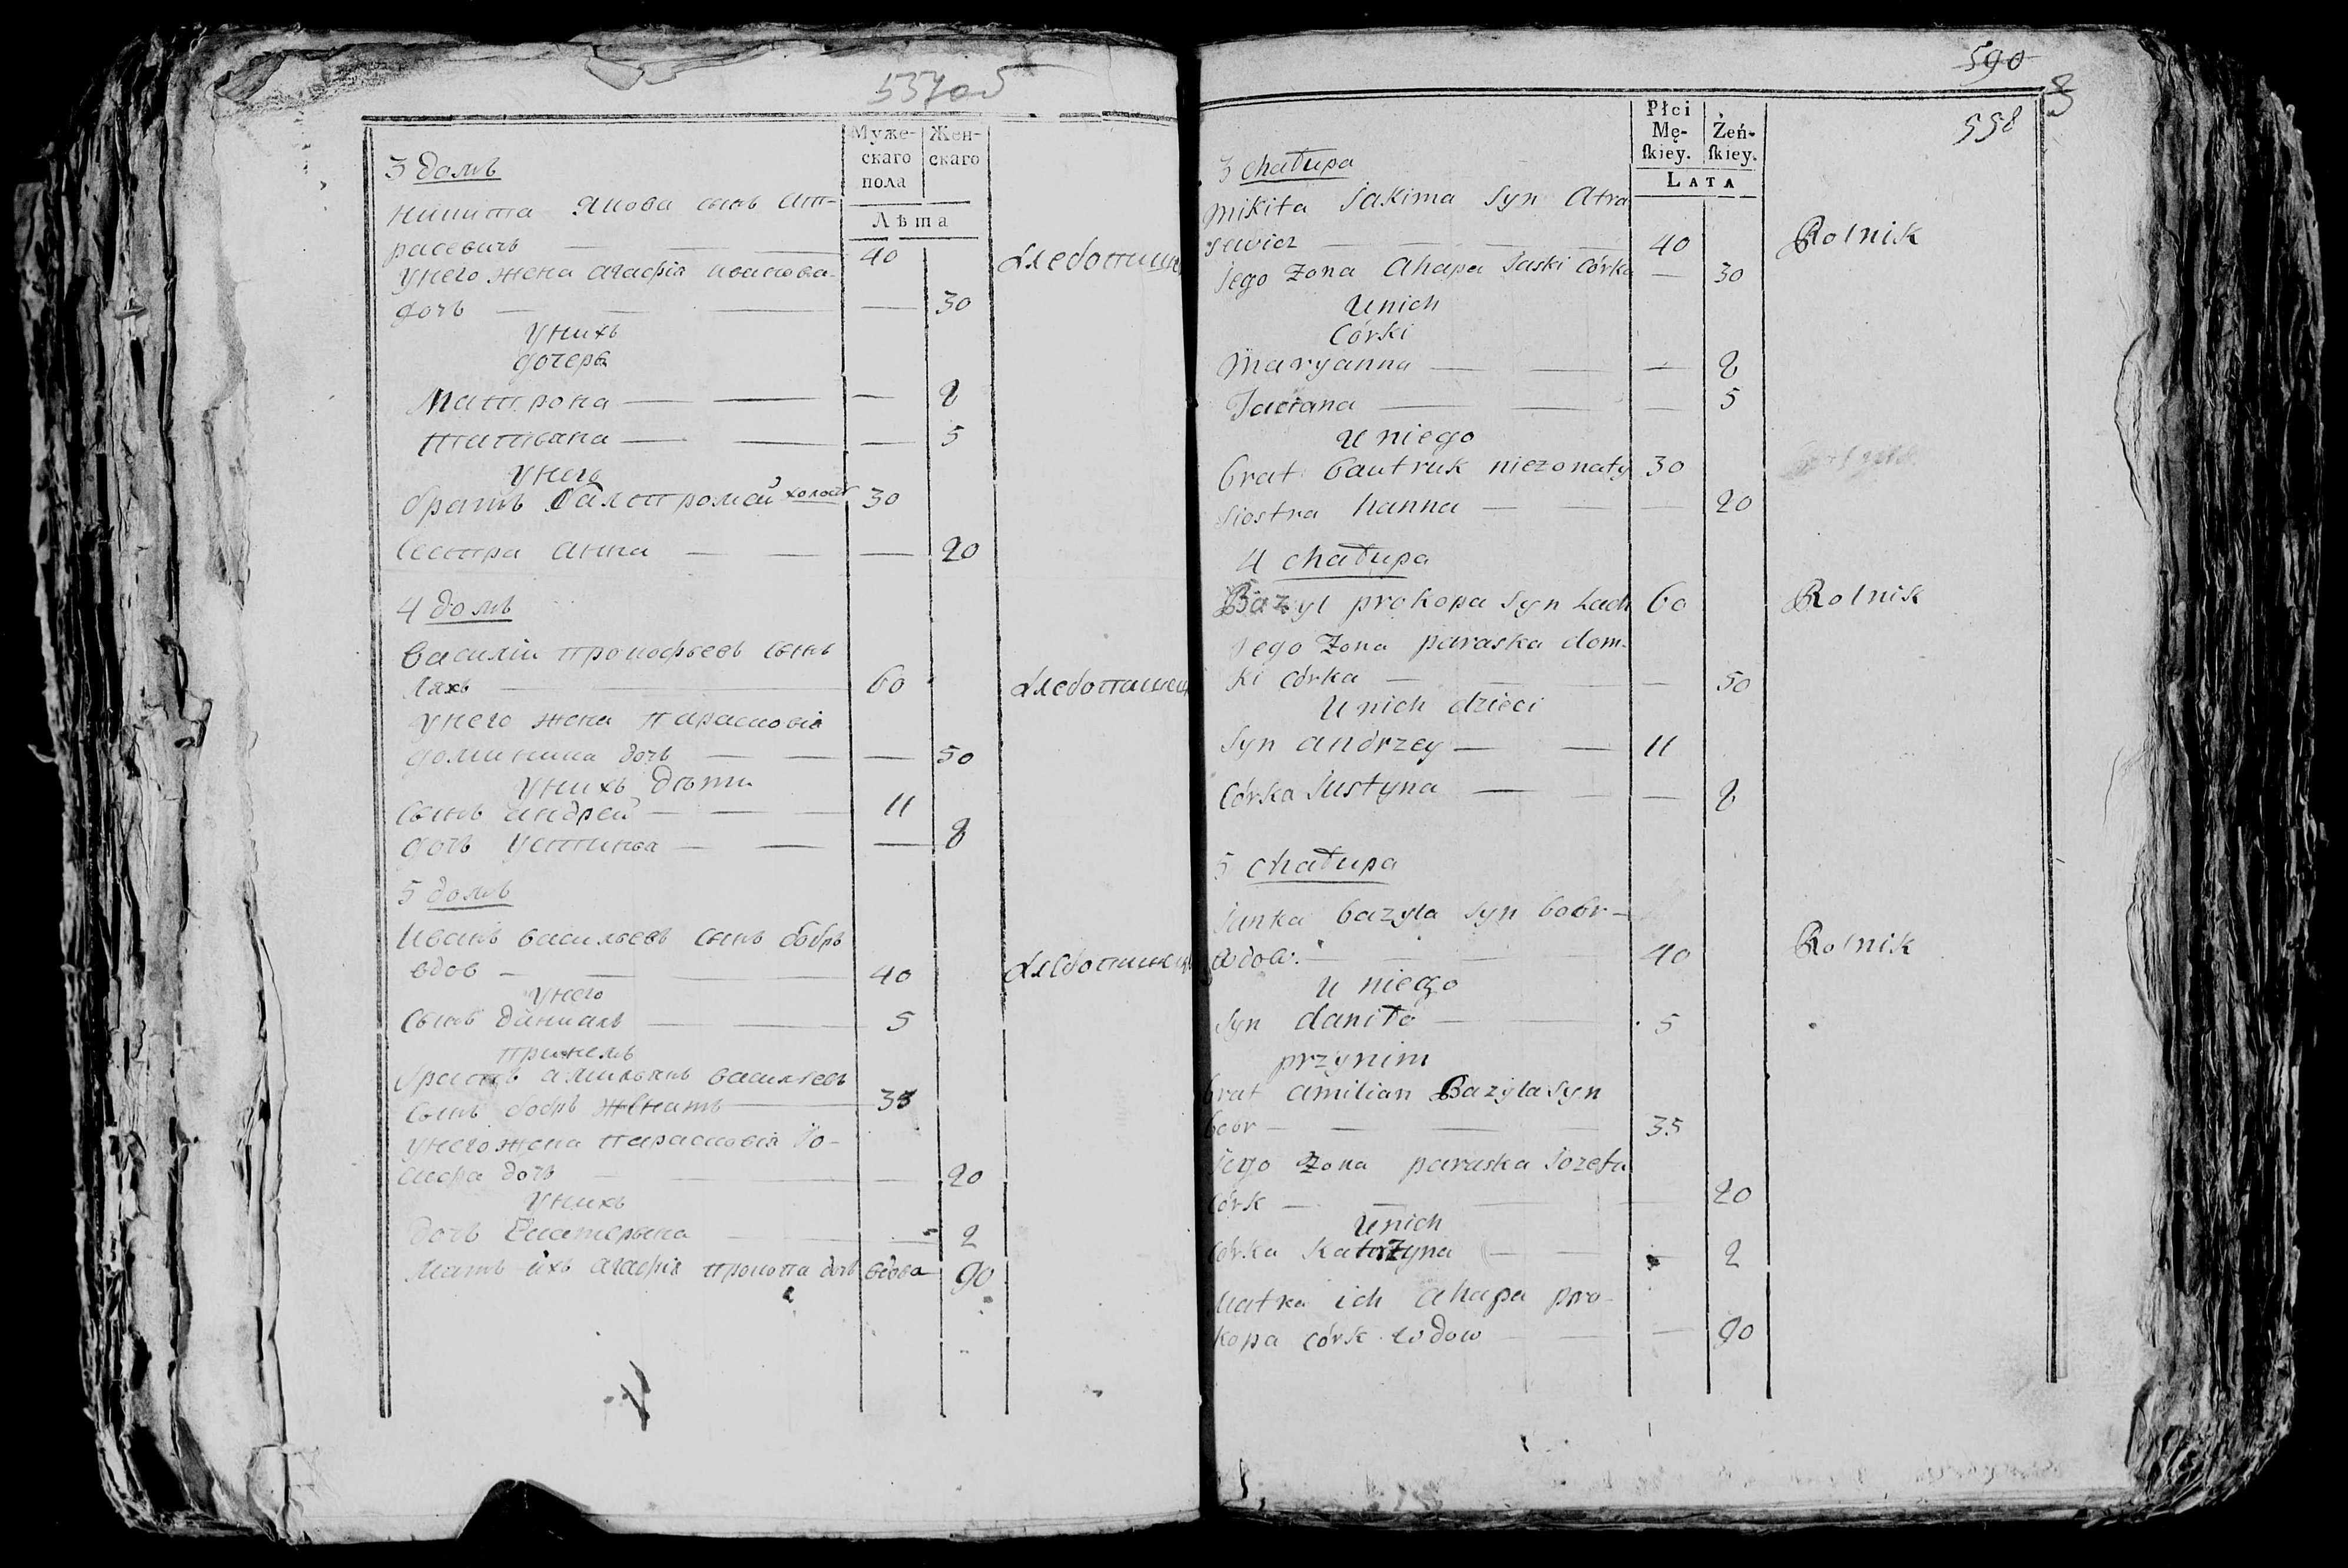 557 об
Муже-
скаго
пола
Жен-
скаго
Лѣта
3 домъ
Никита Якова сынъ Ат-
расевичъ — — — 40
Хлебопашец
У него жена Агафія
дочь — — — 30
У нихъ
дочери
Матрона — — — 8
Татьяна — — — 5
У него
братъ Балтромей холост 30
Сестра Анна — — — 20
4 домъ
Василій Прокофьевъ сынъ
Ляхъ — 60
Хлебопашец
У него жена Парасковія
Доминика дочь — — — 50
У нихъ дѣти
Сынъ Андрей — — — 11
дочь Устинья — — — 8
5 домъ
Иванъ Васильевъ сынъ Бобръ
вдов — — — 40
Хлебопашец
У него
Сынъ Даниилъ — — 5
При немъ
братъ Амильянъ Васильевъ
сынъ Бобръ женатъ — 35
У него жена Парасковія Іо-
сифа дочь — — — 20
У нихъ
дочь Екатерына — — 2
Мать ихъ Агафія Прокопа дочь вдова 90
590
8
558
Płci
Mę-
ſkiey.
Żeń-
ſkiey.
LATA
3 chałupa
Mikita Jakima Syn Atra
sewicz — — — 40
Rolnik
Jego Żona Ahapa Jaski Córka — 30
U nich
Córki
Maryanna — — — 8
Taciana — — — 5
U niego
brat bautruk niezonaty 30
Siostra hanna — — — 20
4 chałupa
Bazyl prokopa Syn Lach 60
Rolnik
Jego Żona paraska dom-
ki córka — — — 50
U nich dzieci
Syn andrzey — — 11
Córka Justyna — — — 8
5 chałupa
Janka bazyla Syn bobr —
wdow. — — — 40
Rolnik
U niego
Syn daniło — — 5
przy nim
brat amilian Bazyla Syn
bobr — — — — 35
Jego Żona paraska Jozefa
córk — — — 20
U nich
Córka Katarzyna — — — 2
Matka ich ahapa pro-
kopa córk wdow — — — 90